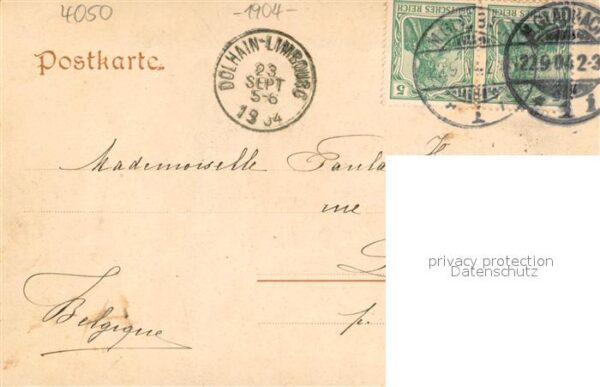 4050
-1904-
Postkarte.
DOLHAIN-LIMBOURG
23
SEPT
5-6
1904
DEUTSCHES REICH
5
DEUTSCHES REICH
GLADBACH
22.9.04.2-3
1
1 i
Mademoiselle Paula
rue
privacy protection
Datenschutz
p.
Belgique